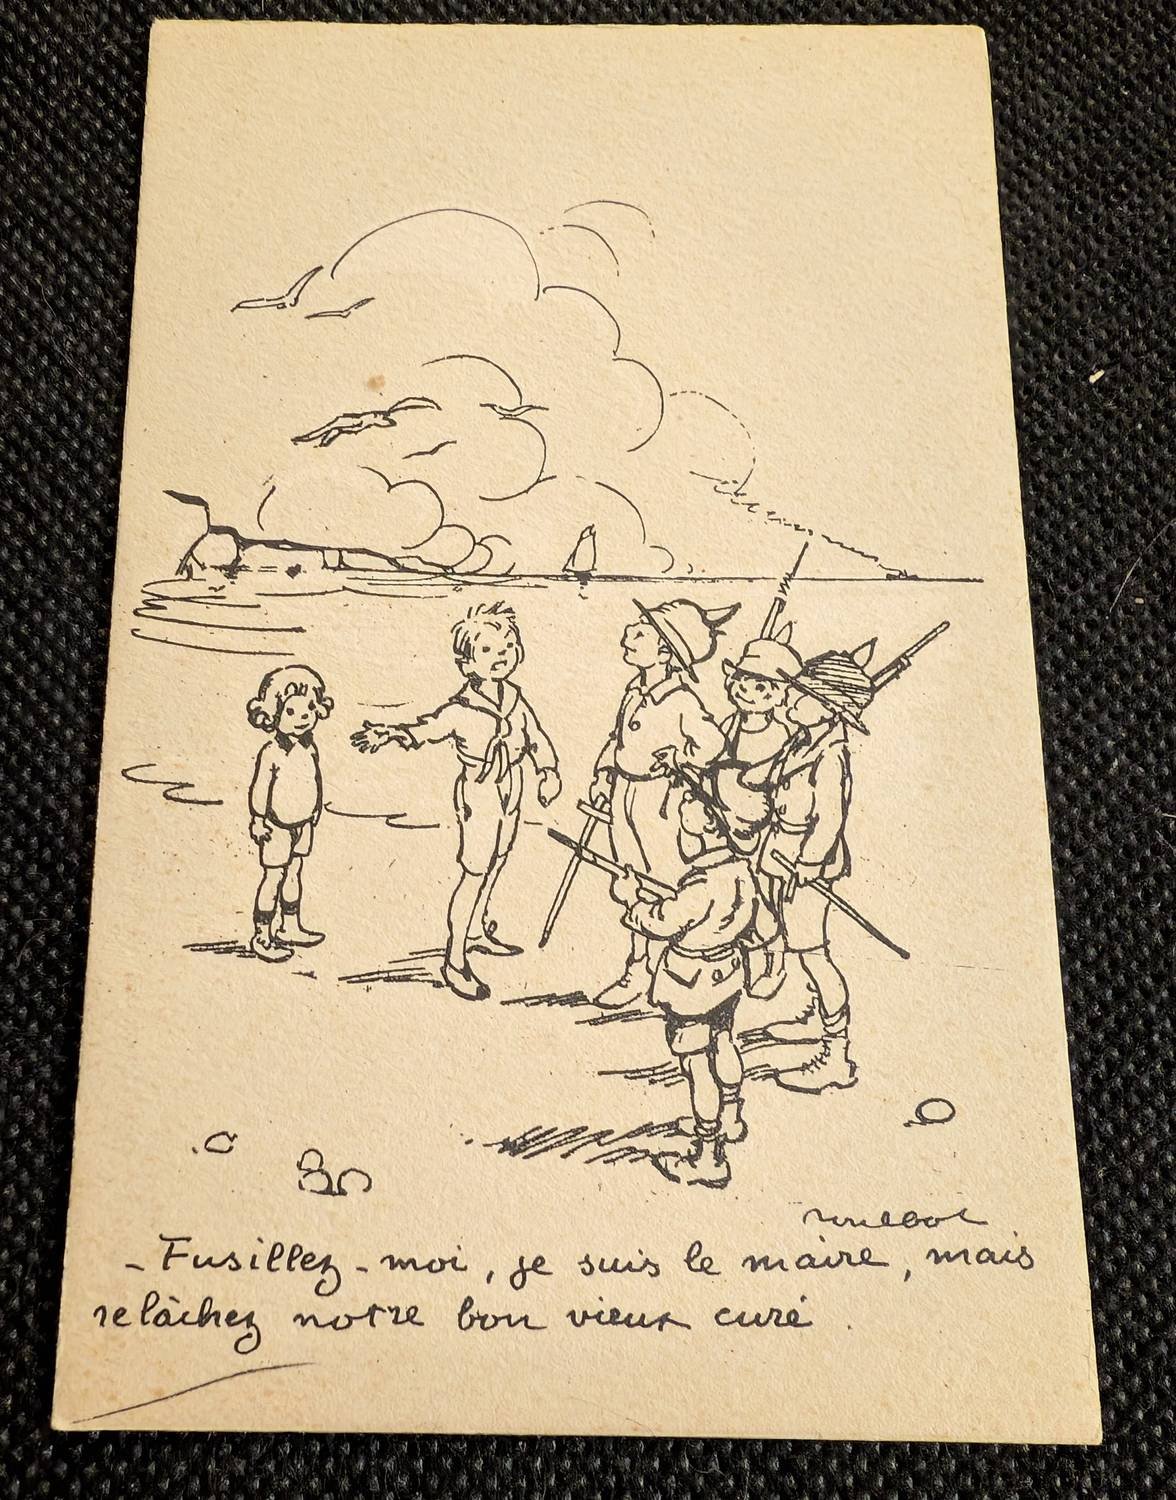 Poulbot
- Fusillez-moi, je suis le maire, mais
relâchez notre bon vieux curé.